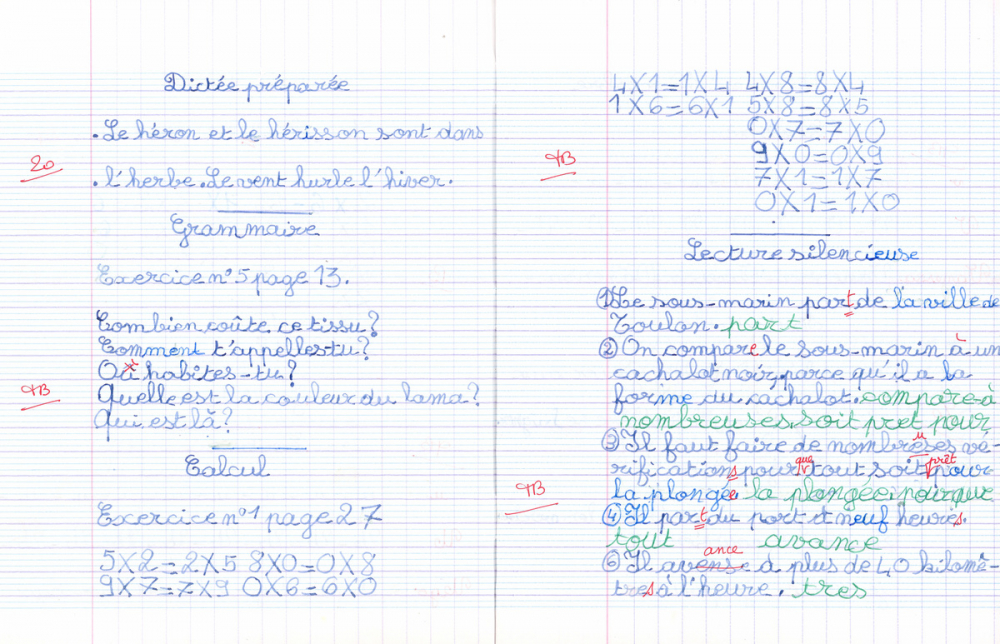 Dictée préparée
.Le héron et le hérisson sont dans
20
.l'herbe.Le vent hurle l'hiver.
Grammaire
Exercice n°5 page 13.
Combien coûte ce tissu?
Comment t'appelles-tu?
Où habites-tu?
TB
Quelle est la couleur du lama?
Qui est là?
Calcul
Exercice n°1 page 27
5X2=2X5 8X0=0X8
9X7=7X9 0X6=6X0
4X1=1X4 4X8=8X4
1X6=6X1 5X8=8X5
0X7=7X0
TB
9X0=0X9
7X1=1X7
0X1=1X0
Lecture silencieuse
①Le sous-marin part de la ville de
Toulon. part
② On compare le sous-marin à un
cachalot noir, parce qu'il a la
forme du cachalot. compare à
nombreuses soit pret pour
③ Il faut faire de nombreuses vé-
que prêt
rifications pour tout soit pour
TB
la plongée la plongée pourque
④ Il part du port à neuf heures.
tout avance
ance
⑥ Il avense à plus de 40 kilomè-
tres à l'heure. tres